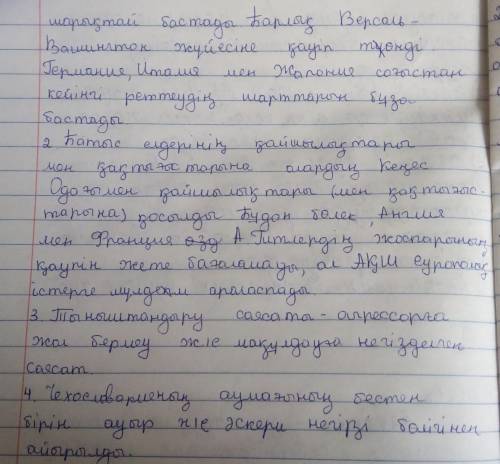 шарықтай бастады Барлық Версаль-
Вашингтон жүйесіне қауіп түөнді
Германия, Италия мен Жапония соғыстан
кейінгі реттеудің шарттарын бұза
бастады
2 Батыс елдерінің қайшылықтары
мен қақтығыстарына олардың Кеңес
Одағымен қайшылықтары (мен қақтығыс-
тарына) қосылды Бұдан бөлек, Англия
мен Франция А Гитлердің жоспарының
қаупін жете бағаламады, ал АҚШ еуропалық
істерге мүлдем араласпады.
3. Тыныштандыру саясаты - агрессорға
жол бермеу ж/е мақұлдауға негізделген
саясат.
4. Чехословакияның аумағының бестен
бірін ауыр ж/е әскери негізгі бөлігінен
айырылды.